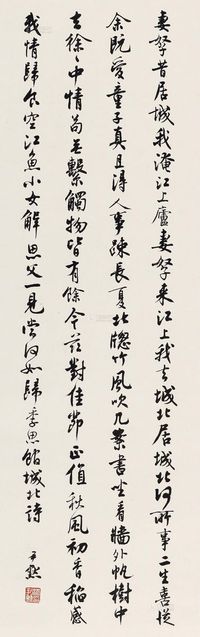 妻孥昔居城我淹江上廬妻孥來江上我去城北居城北何所事二生喜從
余既愛童子真且得人事疎長夏北牕竹風吹几案書坐看牆外帆樹中
去徐〻中情苟無繫觸物皆有餘今茲對佳節正值秋風初香稻感
我情歸食空江魚小女解思父一見當何如歸季思館城北詩
尹默